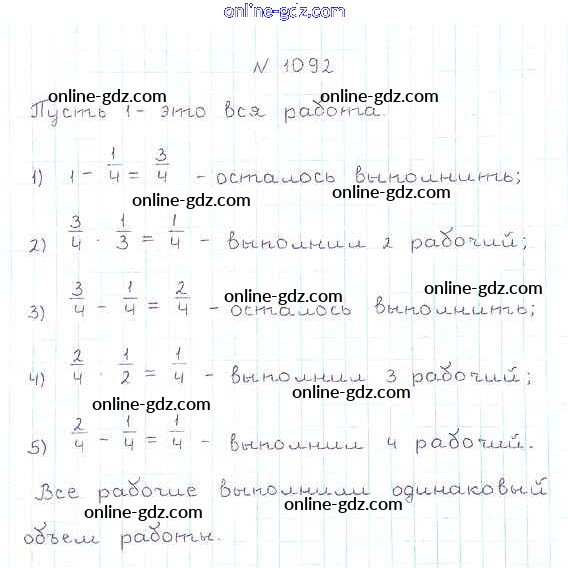 online-gdz.com
N 1092
online-gdz.com online-gdz.com
Пусть 1 - это вся работа.
1) 1 - 1/4 = 3/4 - осталось выполнить;
online-gdz.com online-gdz.com
2) 3/4 · 1/3 = 1/4 - выполнил 2 рабочий;
online-gdz.com online-gdz.com
3) 3/4 - 1/4 = 2/4 - осталось выполнить;
4) 2/4 · 1/2 = 1/4 - выполнил 3 рабочий;
online-gdz.com online-gdz.com
5) 2/4 - 1/4 = 1/4 - выполнил 4 рабочий.
Все рабочие выполнили одинаковый
online-gdz.com online-gdz.com
объем работы.